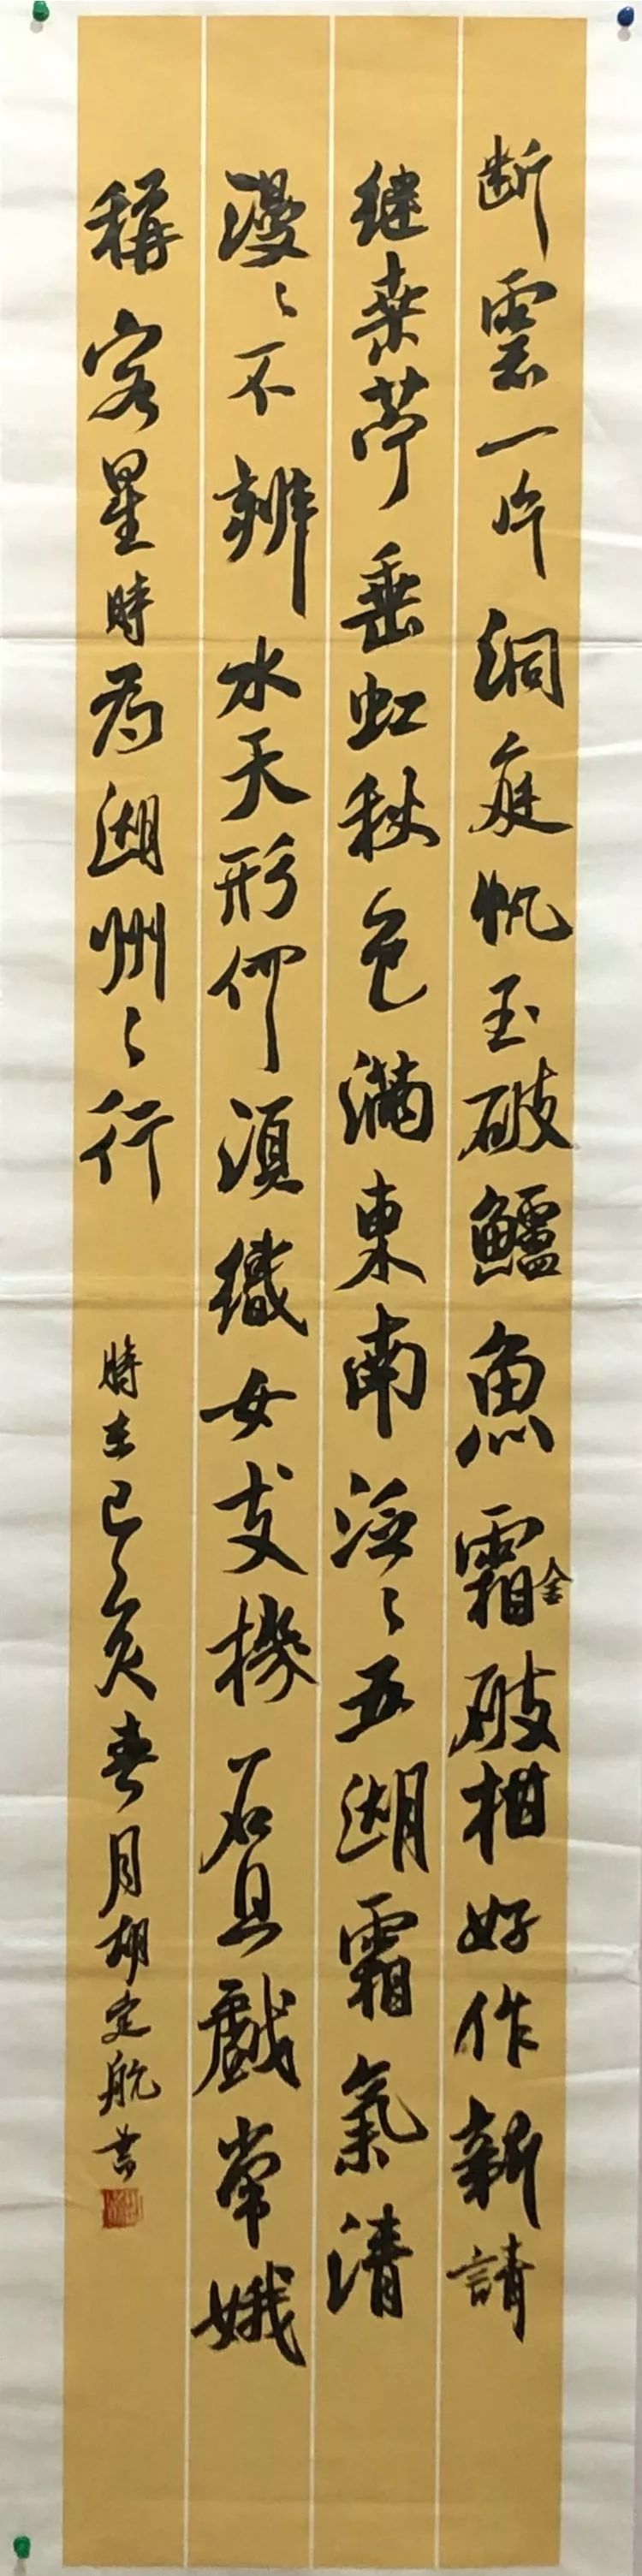 断雲一片洞庭帆玉破鱸魚霜金破柑好作新請
継桑苧垂虹秋色滿東南泛〻五湖霜氣清
漫〻不辨水天形何須織女支機石且戲常娥
稱客星時為湖州之行 時在己亥春月胡定航書